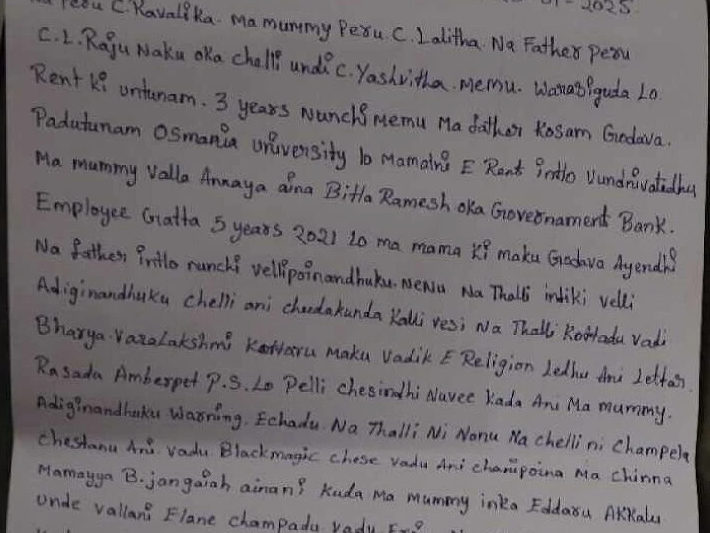 Na Peru C. Ravalika. Ma mummy Peru C. Lalitha. Na Father peru
C.L. Raju Naku oka chelli undi C. Yashvitha. Memu. Warasiguda Lo
Rent ki untunam. 3 years Nunchi Memu Ma father kosam Godava.
Padutunam Osmania University lo Mamalni E Rent intlo Vundnivatedhu
Ma mummy Valla Annaya aina Bitla Ramesh oka Governament Bank.
Employee Gatta 5 years 2021 lo ma mama ki maku Godava Ayendhi
Na father intlo nunchi vellipoinandhuku. Nenu Na Thalli intiki velli
Adiginandhuku chelli ani chudakunda Kalli vesi Na Thalli Kottadu vadi
Bharya. Varalakshmi Kottaru Maku Vadik E Religion Ledhu Ani Letter.
Rasada Amberpet P.S. Lo Pelli chesindhi Nuvee Kada Ani Ma mummy.
Adiginandhuku Warning. Echadu. Na Thalli Ni Nanu Na chelli ni Champela
chestanu Ani. vadu. Blackmagic chese vadu Ani chanipoina Ma chinna
Mamayya B. jangaiah ainani Kuda Ma Mummy inka Eddaru AKKalu
unde vallani Elane champadu. Vadu